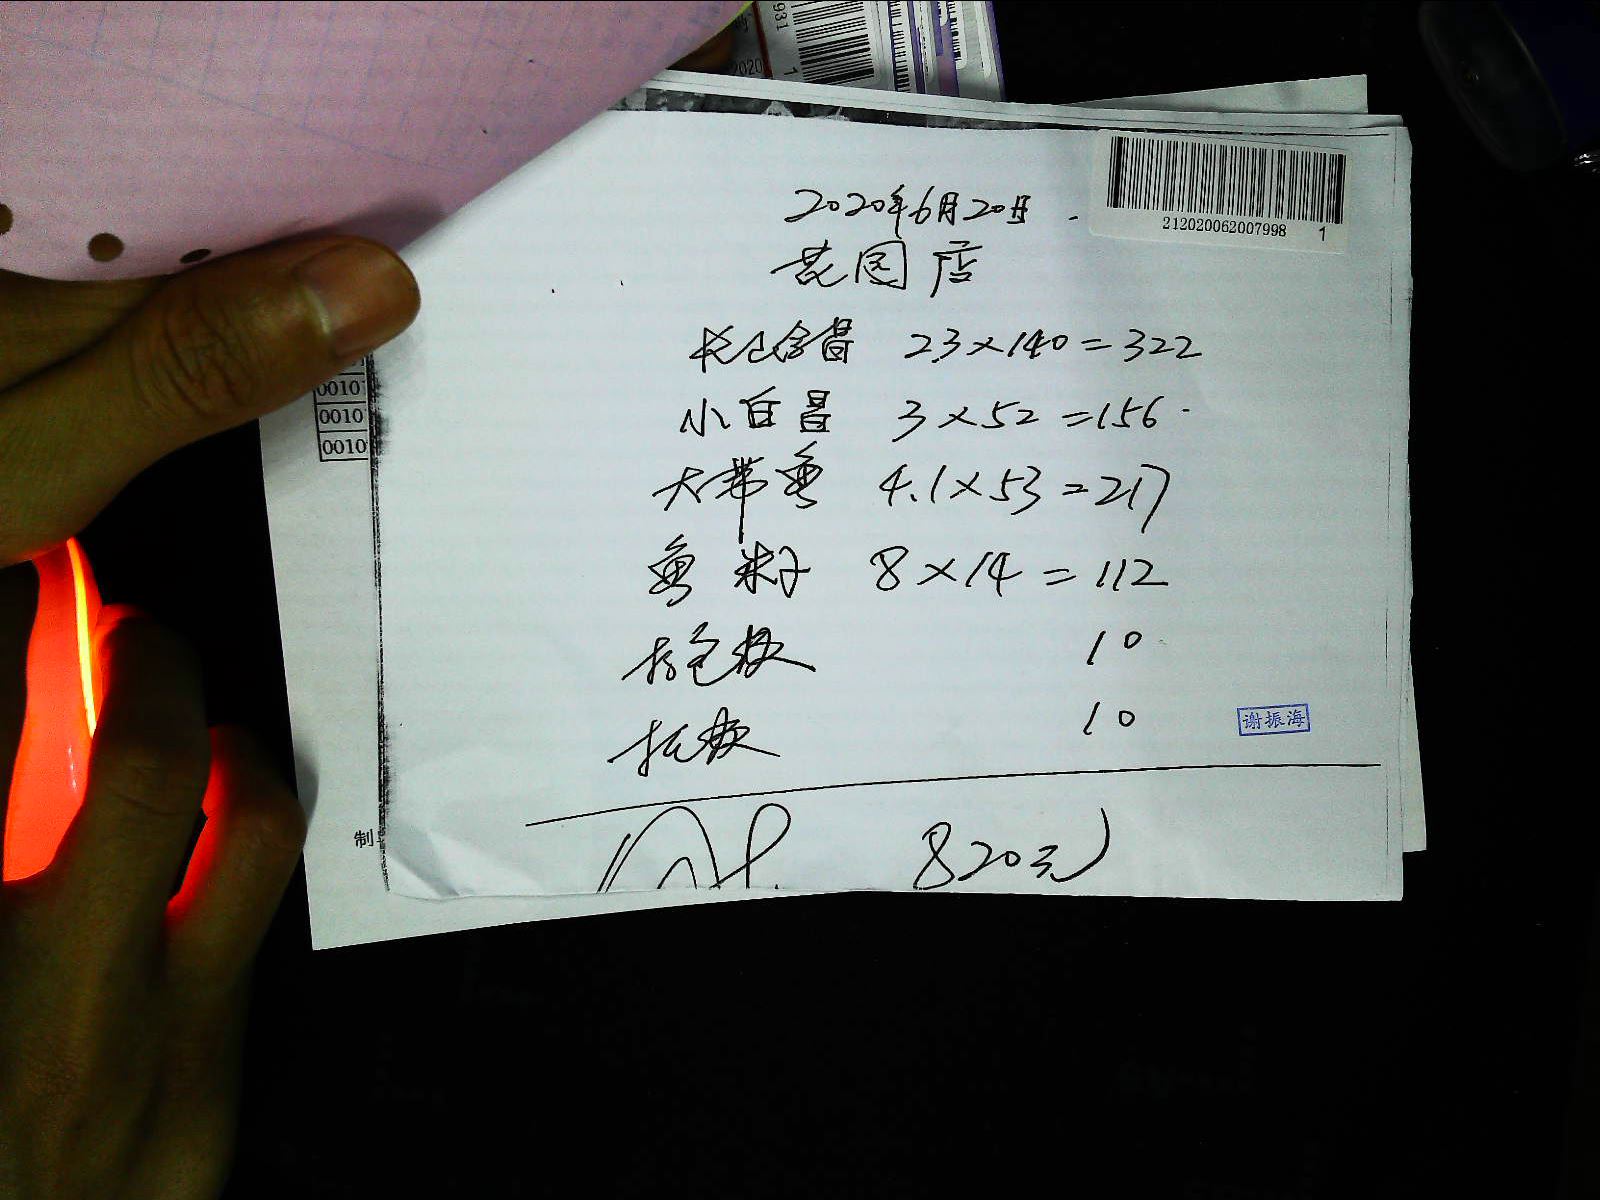 931
2020
1
212020062007998 1
2020年6月20日
花园店
2.3×140=322
小白昌 3×52=156
大带鱼 4.1×53=217
鱼籽 8×14=112
10
托板 10
谢振海
820元
0010
0010
0010
制